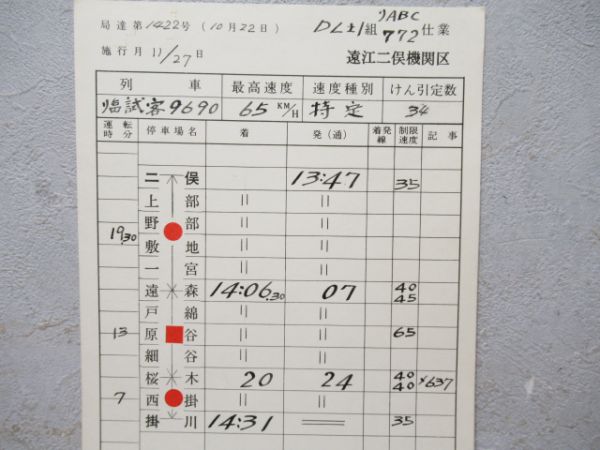 局達第1422号(10月22日)
DL古1組 ABC 772仕業
施行月 11/27日
遠江二俣機関区
列車 最高速度 速度種別 けん引定数
臨試客9690 65 KM/H 特定 34
運転時分 停車場名 着 発(通) 着発線 制限速度 記事
二俣 13:47 35
上部 〃 〃
野部 〃 〃
19.30
敷地 〃 〃
一宮 〃 〃
遠森 14:06.30 07 40 45
戸綿 〃 〃
13 原谷 〃 〃 65
細谷 〃 〃
桜木 20 24 40 40 ×637
7 西掛 〃 〃
掛川 14:31 35